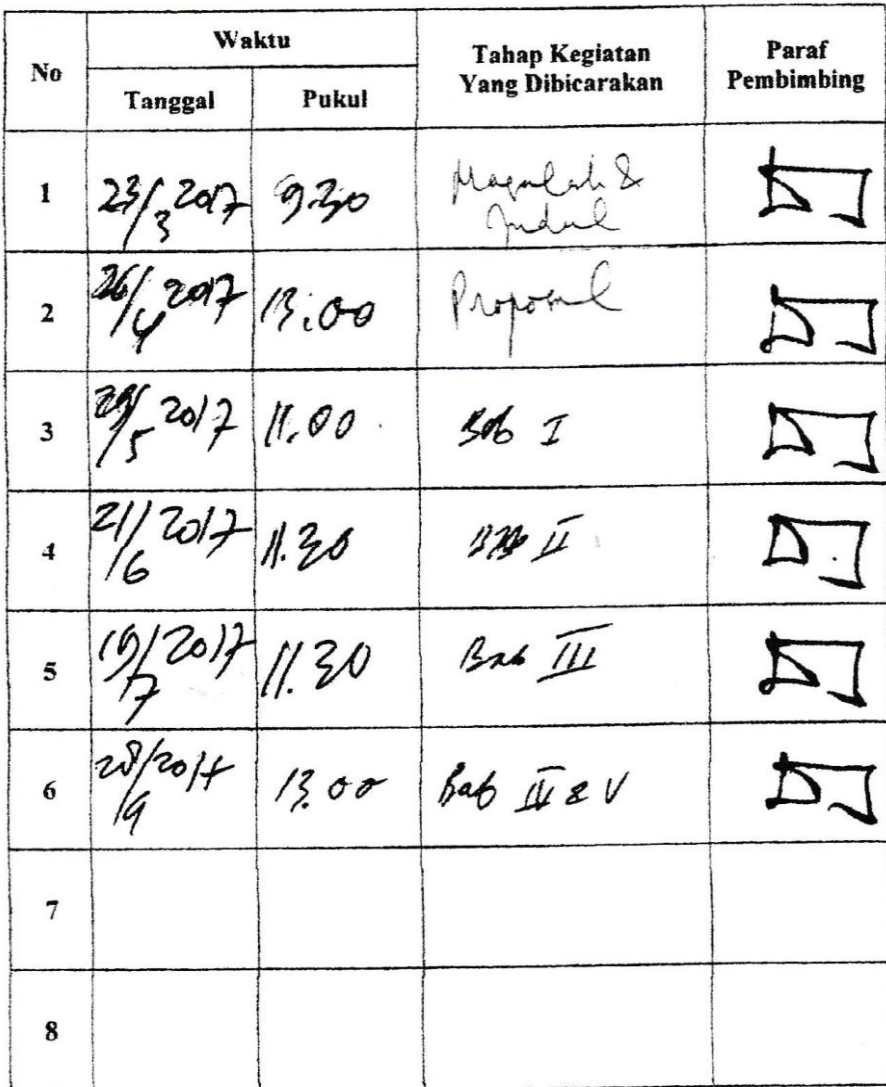 No Waktu Tahap Kegiatan Yang Dibicarakan Paraf Pembimbing
Tanggal Pukul
1 23/3 2017 9.30 Masalah &
Judul
2 26/4 2017 13.00 Proposal
3 29/5 2017 11.00 Bab I
4 21/6 2017 11.30 Bab II
5 19/7 2017 11.30 Bab III
6 28/9 2017 13.00 Bab IV & V
7
8